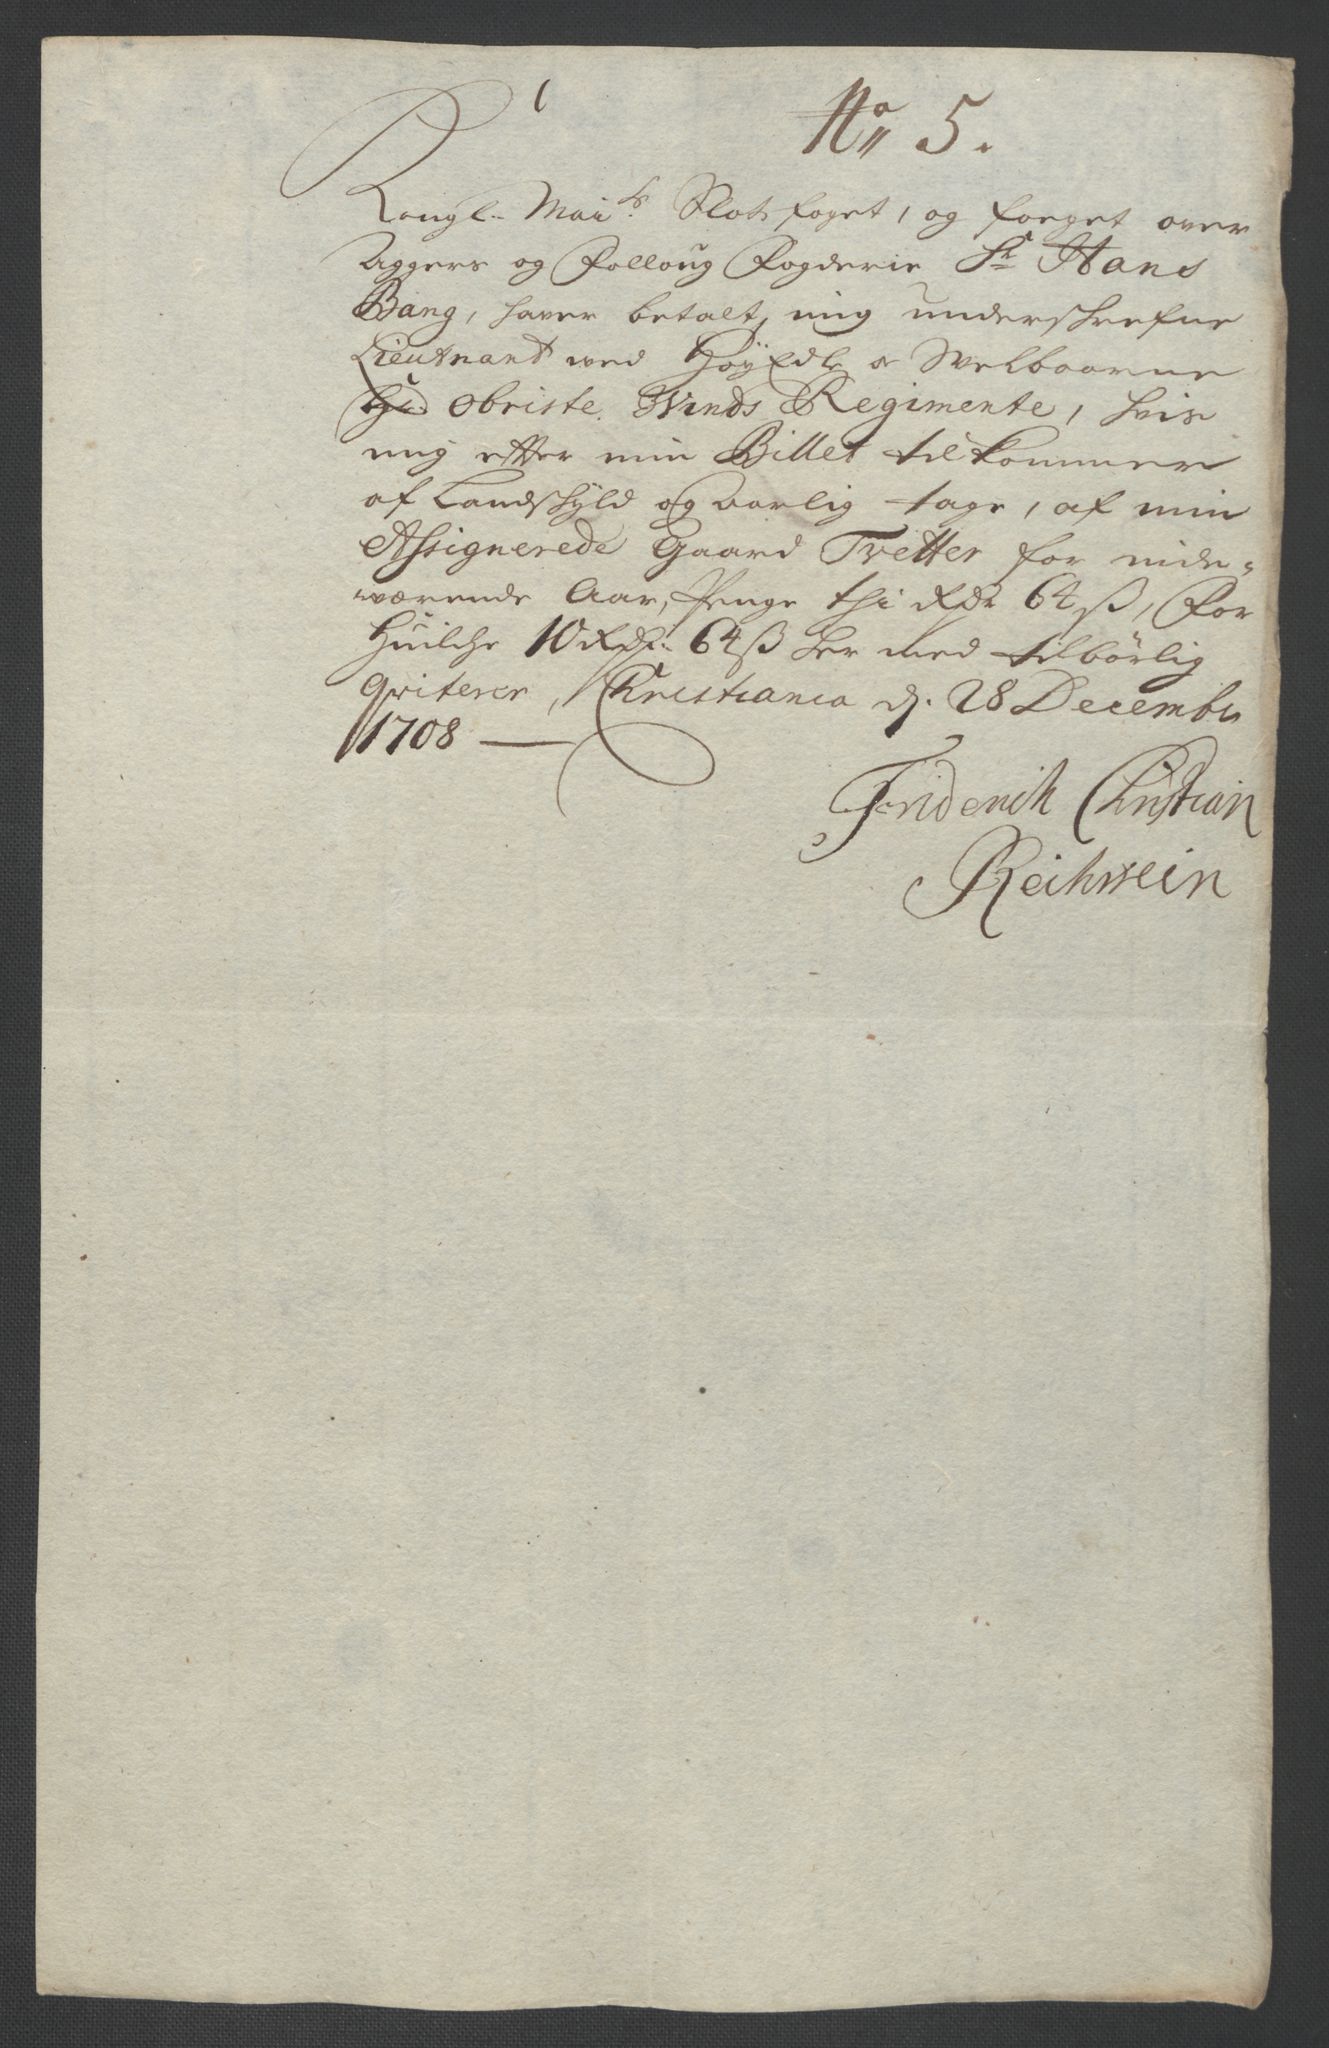 No 5.
Kongl. Mai.ts Slotsfoget, og foeget over
Aggers og Folloug Fogderie Sr Hans
Bang, haver betalt, mig underschrefne
Lieutnant ved HöyEdle og Welbaarne
Hr. Obriste Winds Regimente, hvis
mig efter min Billet tilkommer
af Landschyld og aarlig tage, af min
Assignerede Gaard Tvetter for inde-
værende Aar, Penge thi Rdr 64 ß, For
Huilche 10 Rdr. 64 ß her med tilbörlig
Qviterer, Christiania d. 28 Decembr
1708
Friderich Christian
Reichwein